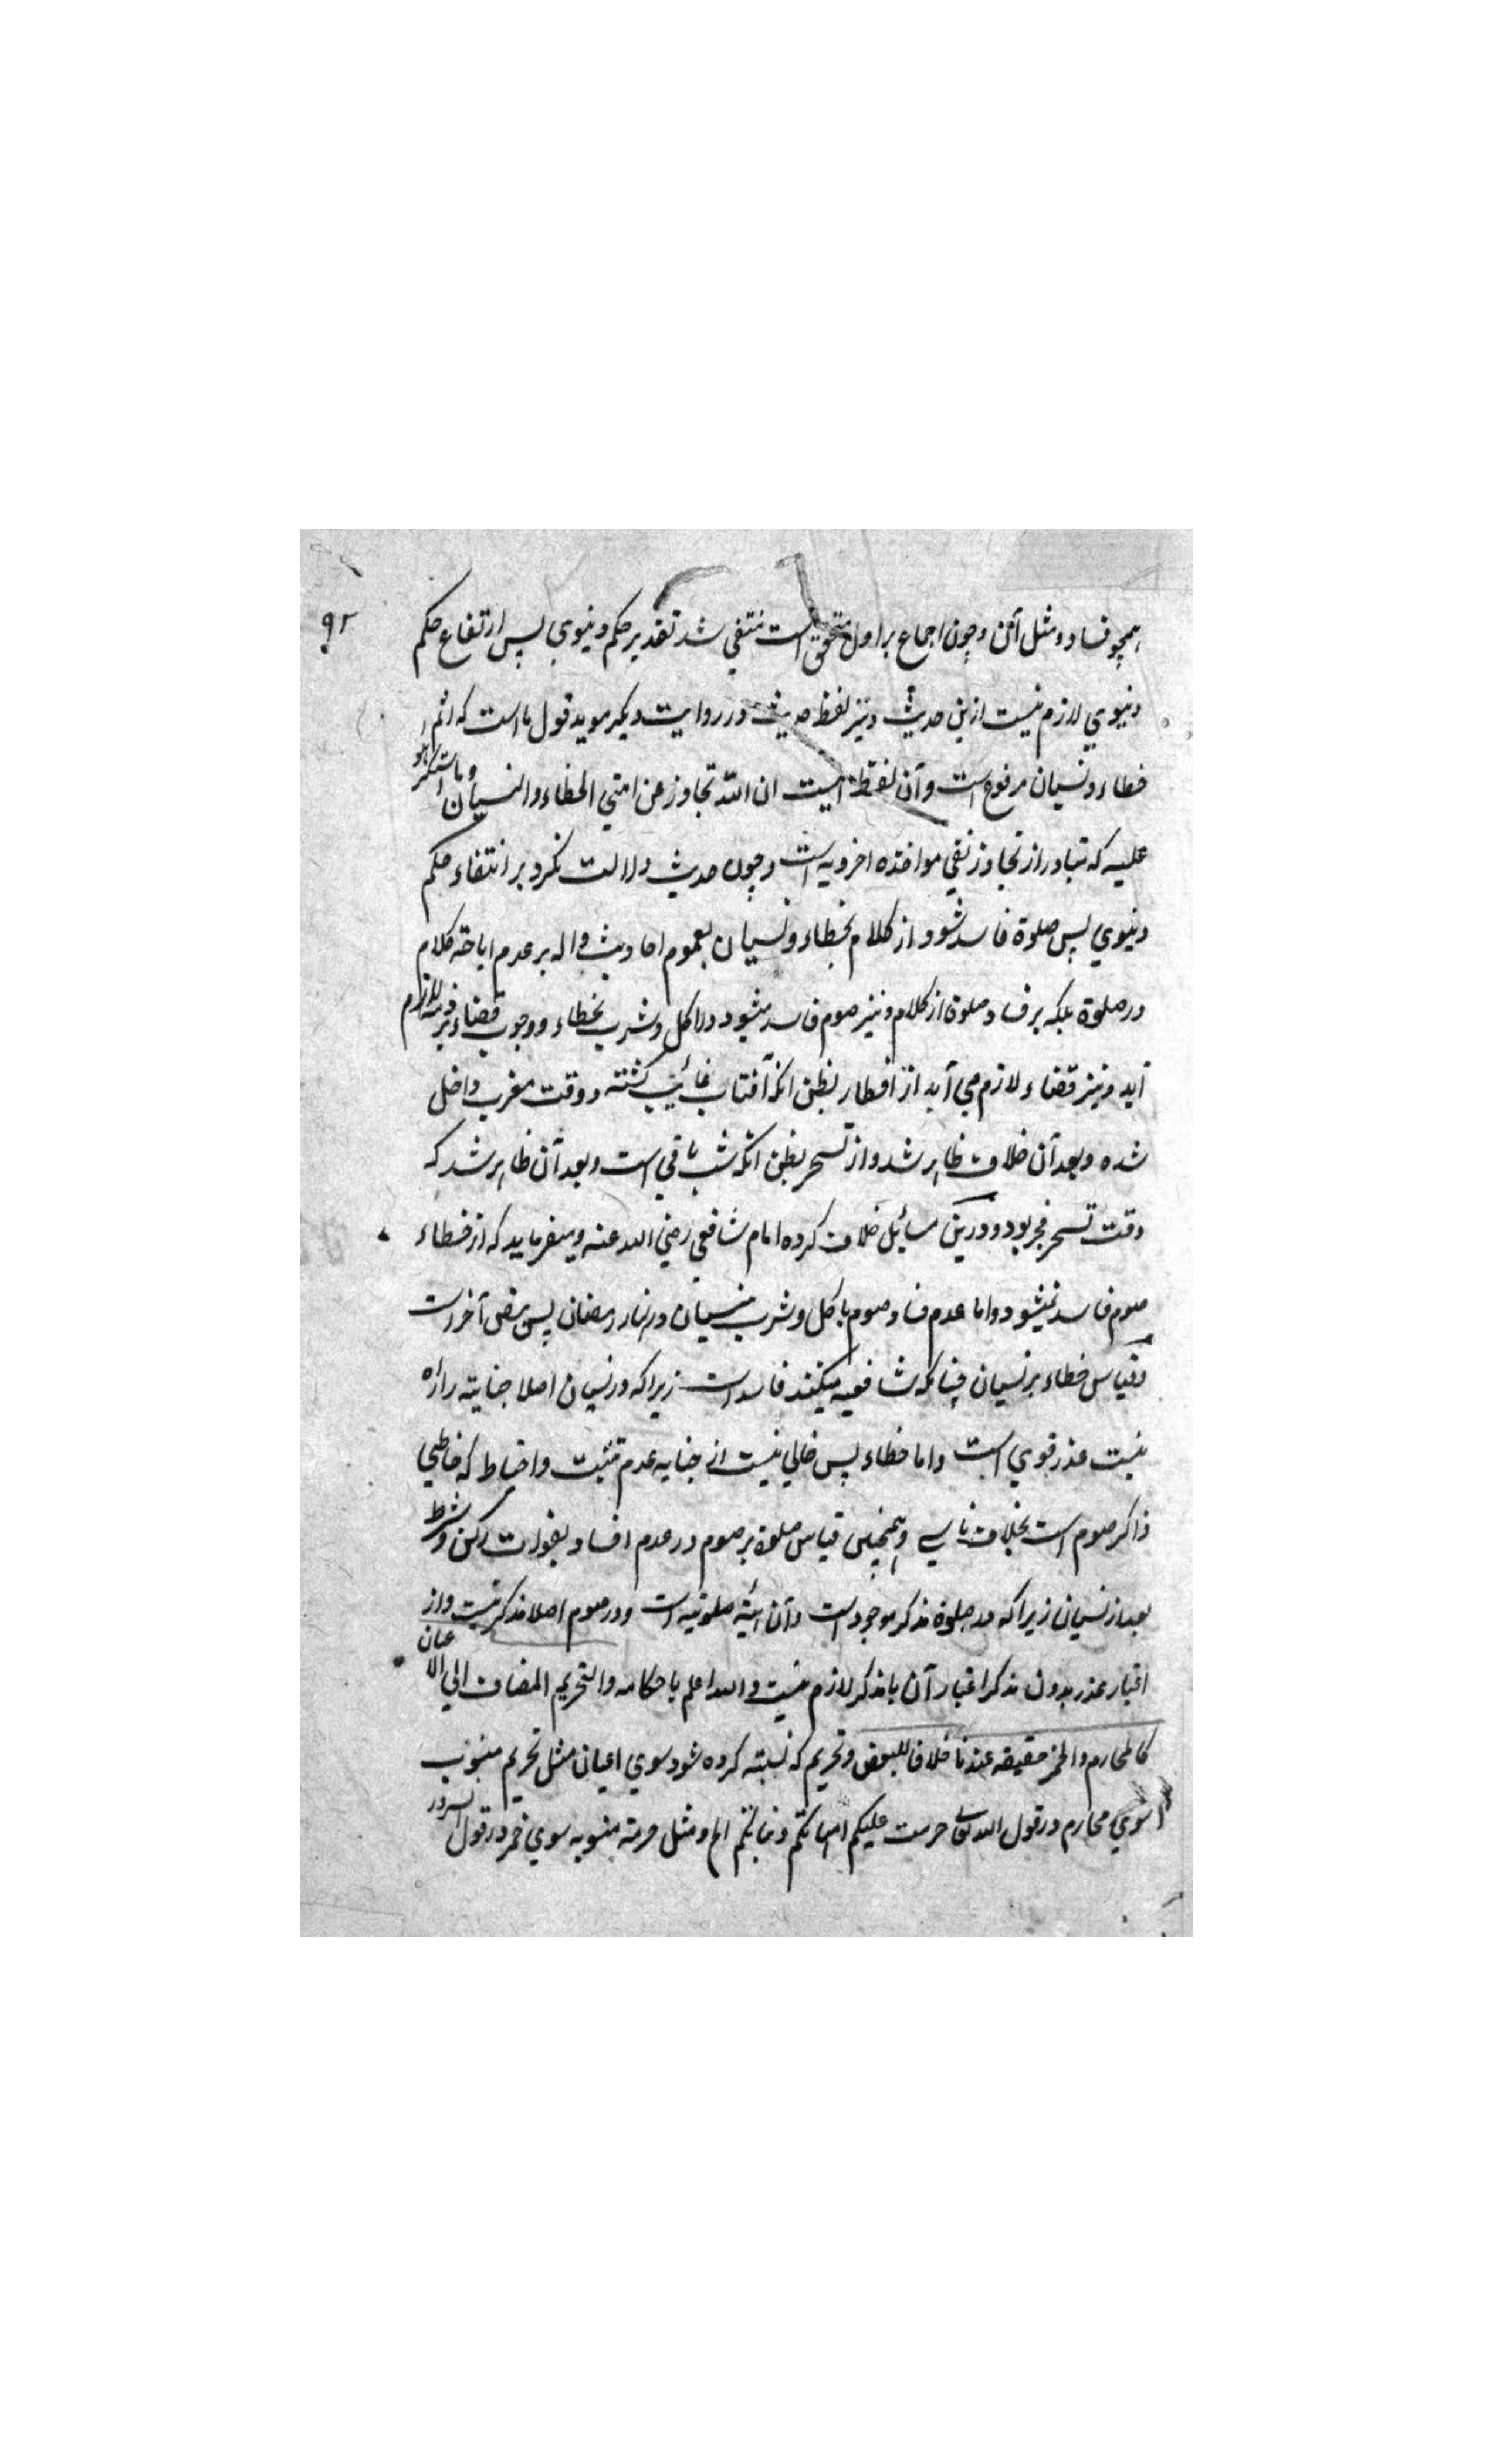 ۹۲
همچو فساد و مثل آن و چون اجماع بر اول متحقق است منتفی شد تقدیر حکم دنیوی پس ارتفاع حکم
دنیوی لازم نیست ازین حدیث و نیز لفظ حدیث در روایت دیگر موید قول ما است که اثم
خطاء و نسیان مرفوع است و آن لفظ اینست ان الله تجاوز عن امتی الخطاء والنسیان وما استکرهوا
علیه که تبادر از تجاوز نفی مواخذه اخرویه است و چون حدیث دلالت نکرد بر انتفاء حکم
دنیوی پس صلوة فاسد شود از کلام بخطاء و نسیان بعموم احادیث داله بر عدم اباحة کلام
در صلوة بلکه بر فساد صلوة از کلام و نیز صوم فاسد میشود در اکل و شرب بخطاء و وجوب قضاء بر ذمه لازم
آید و نیز قضاء لازم می آید از افطار بظن انکه آفتاب غائب گشته و وقت مغرب داخل
شده و بعد آن خلاف ظاهر شد و از تسحر بظن انکه شب باقی است و بعد آن ظاهر شد که
وقت تسحر فجر بود و درین مسائل خلاف کرده امام شافعی رضی الله عنه و میفرماید که از خطاء
صوم فاسد نمیشود و اما عدم فساد صوم باکل و شرب بنسیان در نهار رمضان پس بنص آخر است
و قیاس خطاء بر نسیان چنانکه شافعیه میکنند فاسد است زیرا که در نسیان اصلا جنایة را راه
نیست عذر قوی است و اما خطاء پس خالی نیست از جنایه عدم تثبت و احتیاط که خاطی
ذاکر صوم است بخلاف ناسی و همچنین قیاس صلوة بر صوم در عدم افساد بفوات رکن و شرط
بعد از نسیان زیرا که در صلوة مذکر موجود است و آن هیئة صلوتیه است و در صوم اصلا مذکر نیست و از
اعتبار عذر بدون مذکر اعتبار آن با مذکر لازم نیست والله اعلم باحکامه والتحریم المضاف الی الاعیان
کالمحارم والخمر حقیقه عندنا خلافا للبعض و تحریم که نسبته کرده شود سوی اعیان مثل تحریم منسوب
سوی محارم در قول الله تعالی حرمت علیکم امهاتکم و بناتکم الخ و مثل حرمة منسوبه سوی خمر در قول